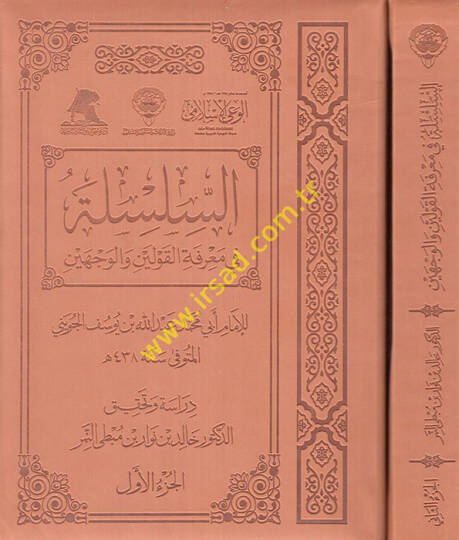 الوعي الإسلامي
السِّلسِلة
في مَعْرفَةِ القَولَيْنِ وَالوَجْهَينِ
للإمام أبي محمد عبد الله بن يوسف الجويني
المتوفى سنة ٤٣٨ هـ
دراسة وتحقيق
الدكتور خالد بن نوار بن مبطي النمر
الجزء الأول
www.irsad.com.tr
السلسلة في معرفة القولين والوجهين
الدكتور خالد بن نوار بن مبطي النمر
الجزء الثاني